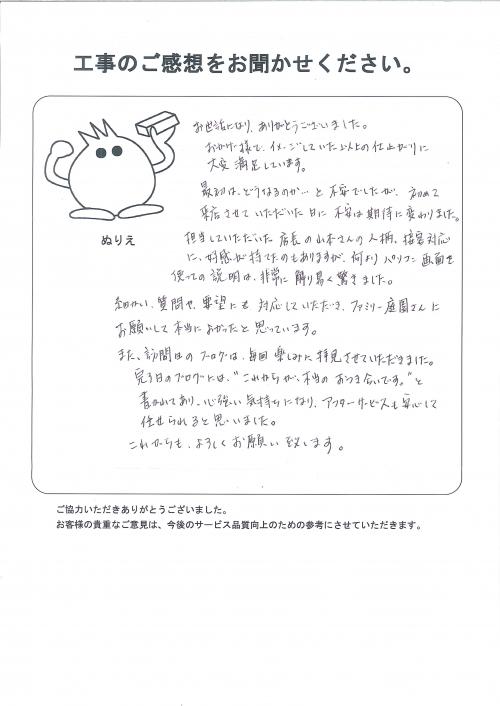 工事のご感想をお聞かせください。
ぬりえ
お世話になり、ありがとうございました。
おかげ様で、イメージしていた以上の仕上がりに
大変満足しています。
最初は、どうなるのか…と不安でしたが、初めて
来店させていただいた日に不安は期待に変わりました。
担当していただいた店長の山本さんの人柄、接客対応
に、好感が持てたのもありますが、何よりパソコン画面を
使っての説明は、非常に解り易く驚きました。
細かい、質問や、要望にも対応していただき、ファミリー庭園さんに
お願いして本当によかったと思っています。
また、訪問日のブログは、毎回楽しみに拝見させていただきました。
完了日のブログには、“これからが、本当のおつき合いです。”と
書かれてあり、心強い気持ちになり、アフターサービスも安心して
任せられると思いました。
これからも、よろしくお願い致します。
ご協力いただきありがとうございました。
お客様の貴重なご意見は、今後のサービス品質向上のための参考にさせていただきます。